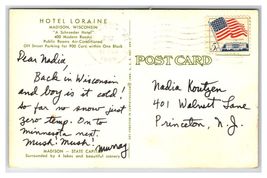 HOTEL LORAINE
MADISON, WISCONSIN
"A Schroeder Hotel"
400 Modern Rooms
Public Rooms Air-Conditioned
Off Street Parking for 900 Cars within One Block
POST CARD
Dear Nadia,
Back in Wisconsin
and boy is it cold!
So far no snow just
zero temp. On to
Minnesota next.
Mush! Mush!
Murray
Nadia Koutzen
401 Walnut Lane
Princeton, N.J.
MADISON - STATE CAPITAL
Surrounded by 4 lakes and beautiful scenery
5c